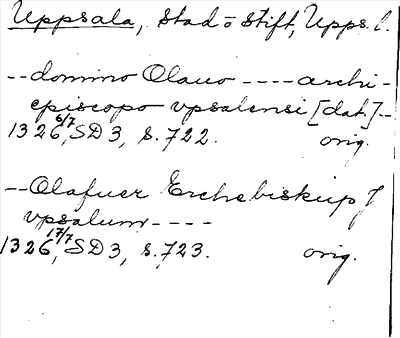 Uppsala, stad o stift, Upps. l.
-- domino Olauo ---- archi-
episcopo vpsalensi [dat.] --
1326 6/7, SD 3, s. 722. orig.
-- Olafuer Erchebiskup J
vpsalum ----
1326 17/7, SD 3, s. 723. orig.